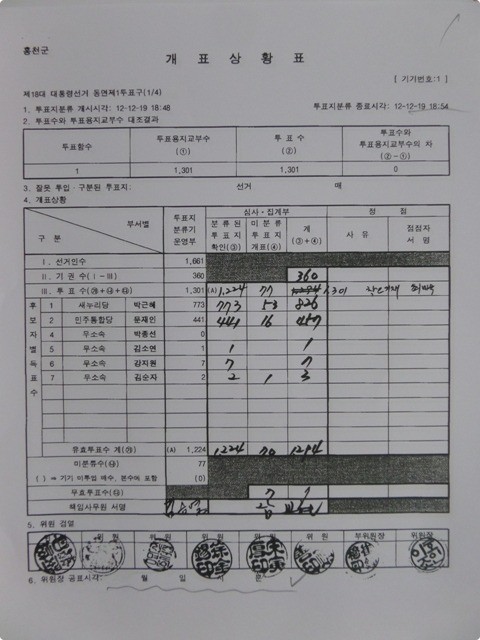 홍천군
개 표 상 황 표
[ 기기번호:1 ]
제18대 대통령선거 동면제1투표구(1/4)
1. 투표지분류 개시시각: 12-12-19 18:48 투표지분류 종료시각: 12-12-19 18:54
2. 투표수와 투표용지교부수 대조결과
투표함수 투표용지교부수 (①) 투 표 수 (②) 투표수와 투표용지교부수의 차 (②-①)
1 1,301 1,301 0
3. 잘못 투입·구분된 투표지: 선거 매
4. 개표상황
구 분 부서별 투표지 분류기 운영부 심사·집계부 정 정
분류된 투표지 확인(③) 미분류 투표지 개표(④) 계 (③+④) 사 유 정정자 서 명
Ⅰ. 선거인수 1,661
Ⅱ. 기 권 수 (Ⅰ-Ⅲ) 360 360
Ⅲ. 투 표 수 1,301 (A) 1,224 77 1301
후보자별 득표수
1 새누리당 박근혜 773 773 53 826
2 민주통합당 문재인 441 441 16 457
4 무소속 박종선 0
5 무소속 김소연 1 1 1
6 무소속 강지원 7 7 7
7 무소속 김순자 2 2 1 3
유효투표수 계 (A) 1,224 1,224 70 1294
미분류수 77
( ) ⇒ 기기 미투입 매수, 본수에 포함 (0)
무효투표수 7 7
책임사무원 서명
5. 위원 검열
위 원 위 원 위 원 부위원장 위원장
6. 위원장 공표시각: 월 일 시 분